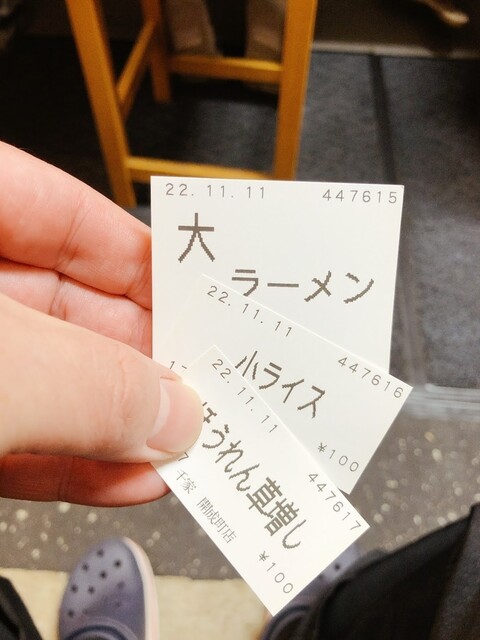 22.11.11 447615
大
ラーメン
22.11.11 447616
小ライス
¥100
22.11.11 447617
ほうれん草増し
千家 開成町店
¥100